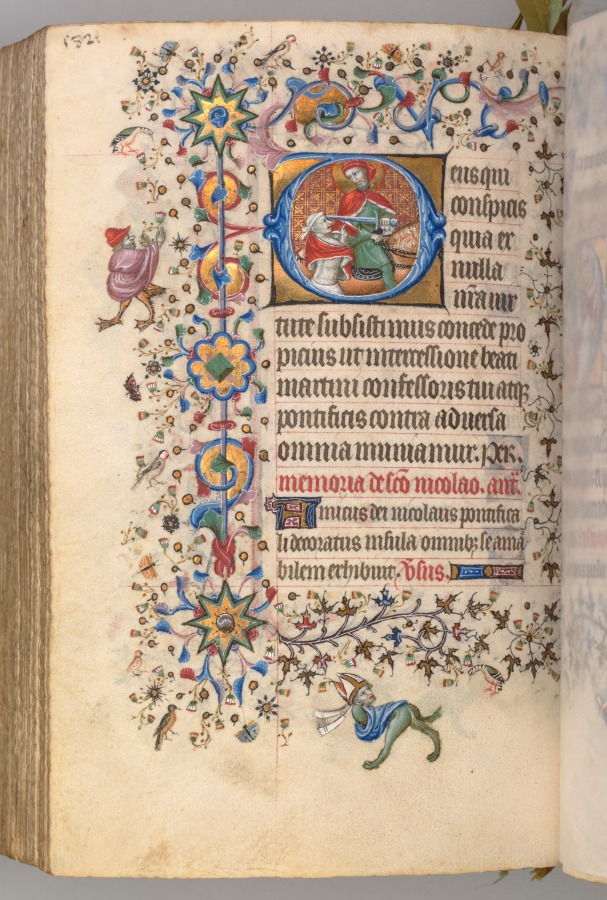 582
Deus qui
conspicis
quia ex
nulla
nr̄a uir
tute subsistimus concede pro
picius ut intercessione beati
martini confessoris tui atq̄
pontificis contra aduersa
omnia muniamur. Per.
memoria de sc̄o nicolao. ant̄.
Amicus dei nicolaus pontifica
li decoratus infula omnibꝫ se ama
bilem exhibuit. v̄sus.